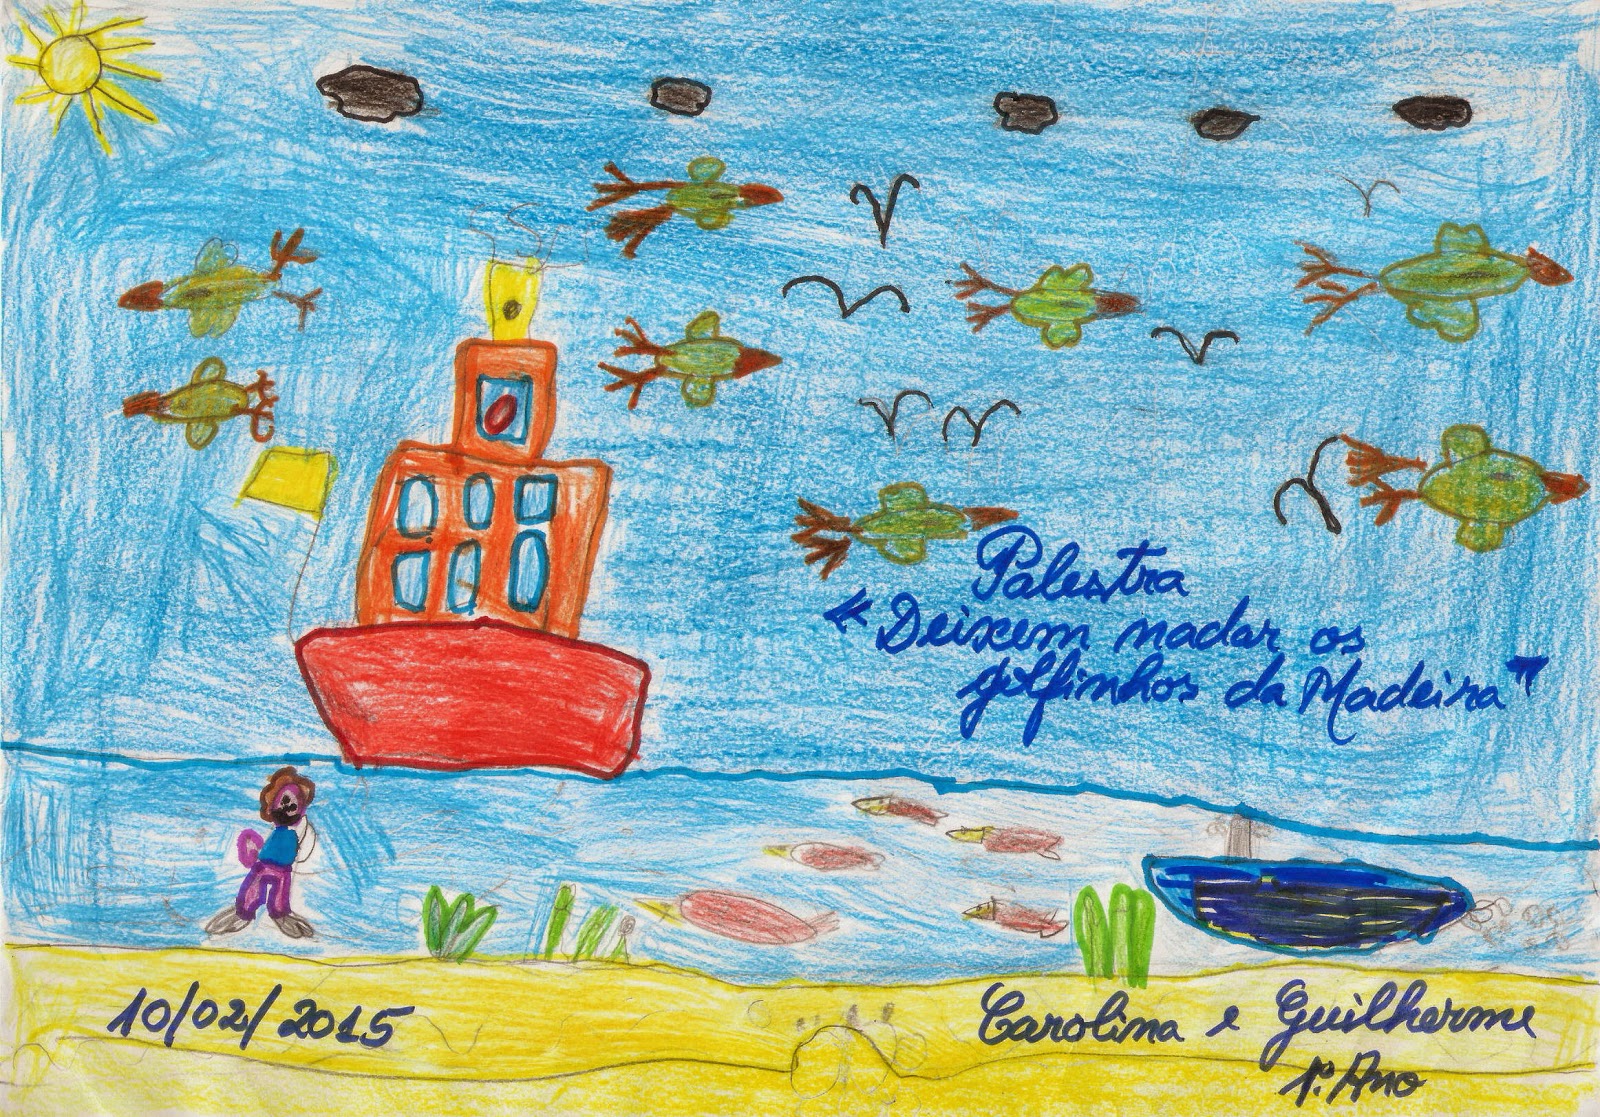 Palestra
"Deixem nadar os
golfinhos da Madeira"
10/02/2015
Carolina e Guilherme
1º. Ano